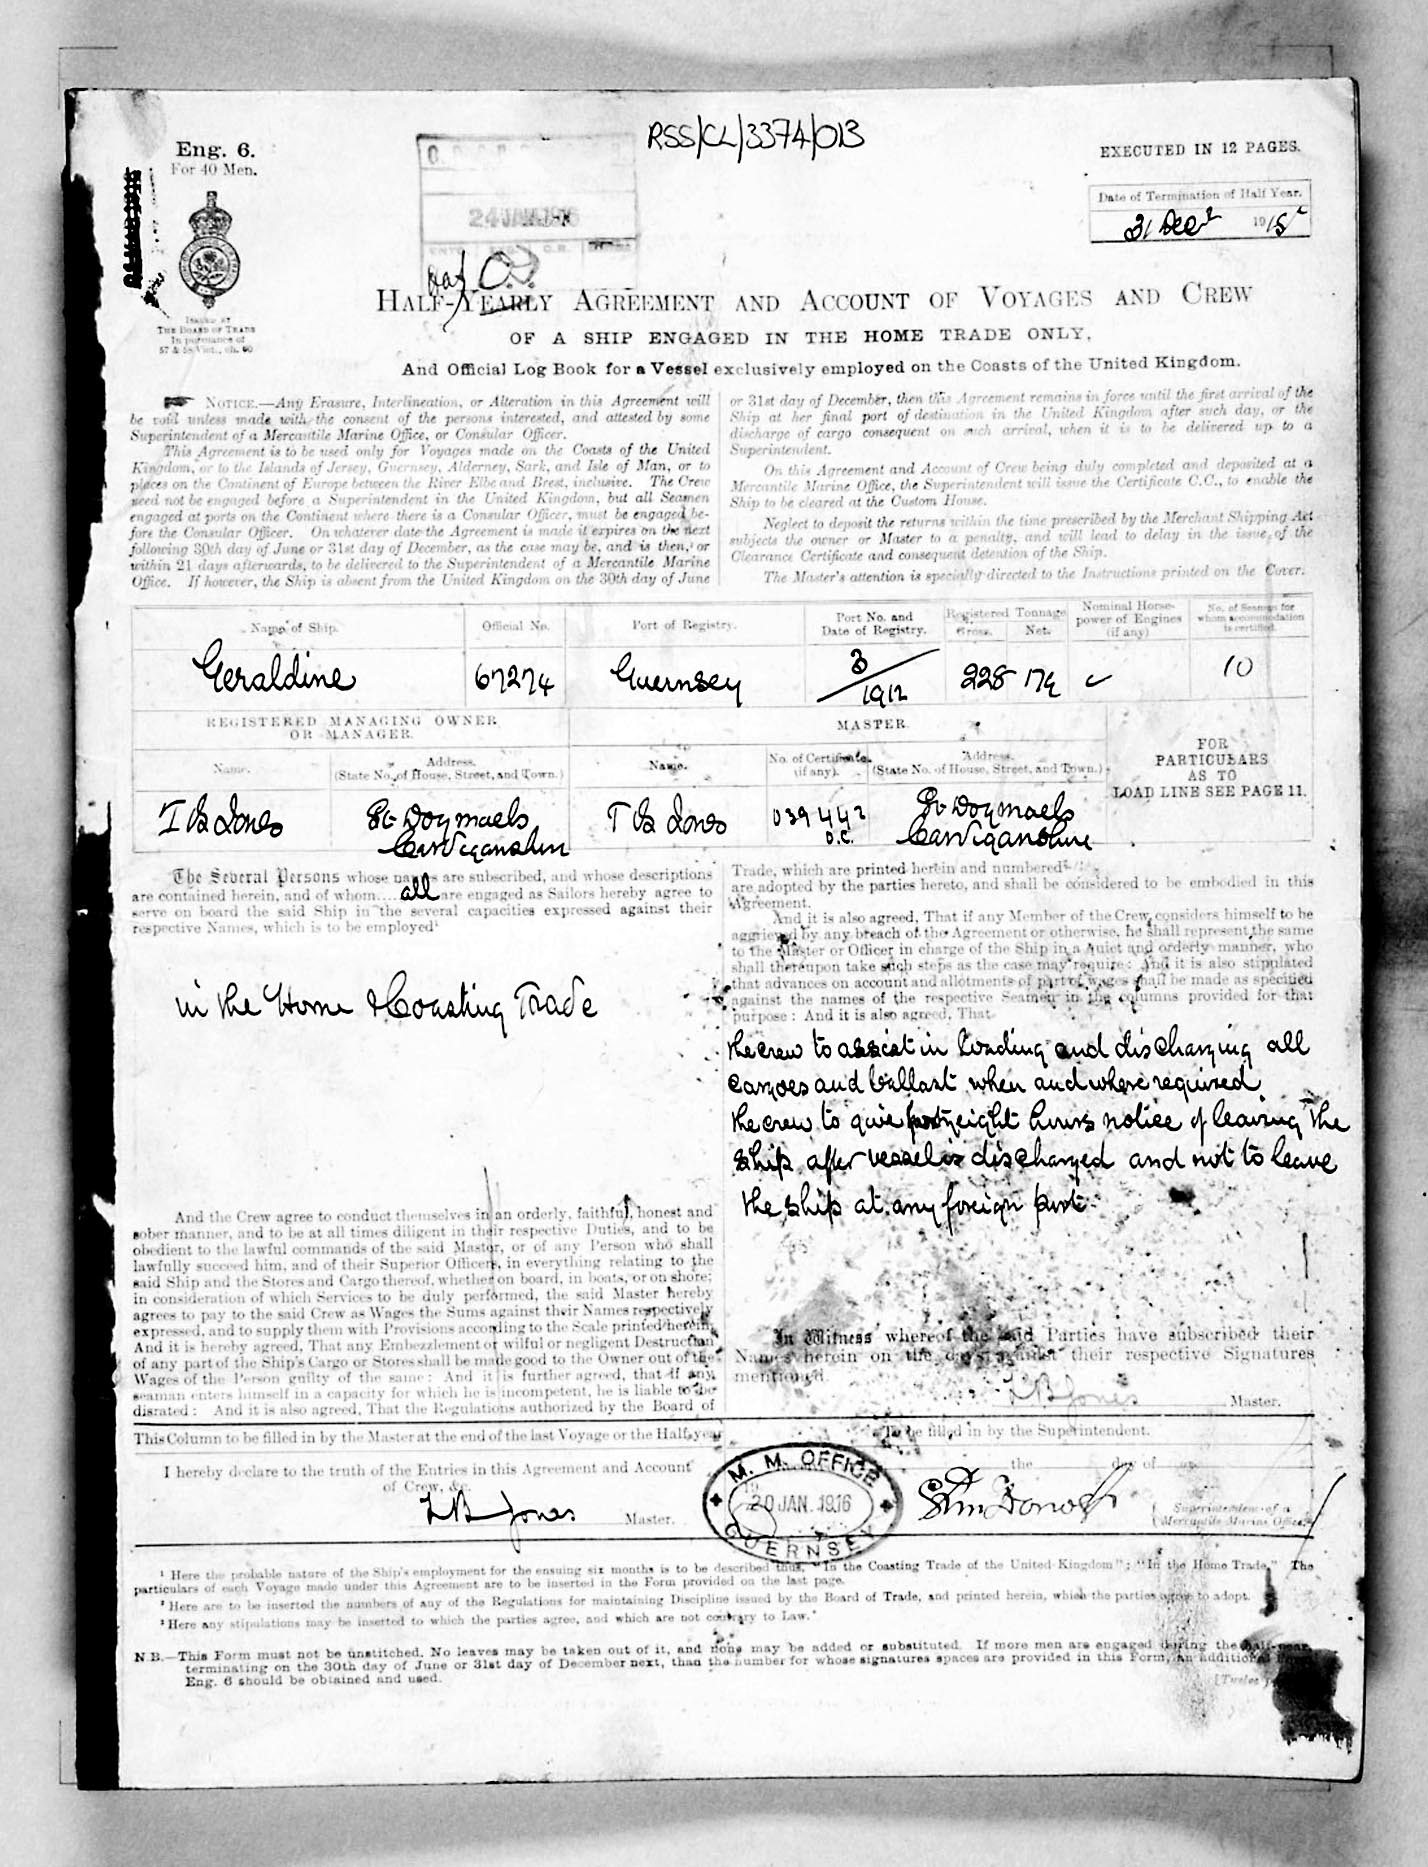 RSS/CL/3374/013
Eng. 6.
For 40 Men.
EXECUTED IN 12 PAGES.
24 JAN 1916
Date of Termination of Half Year.
31 Decr 1915
ISSUED BY
THE BOARD OF TRADE
In pursuance of
57 & 58 Vict., ch. 60
HALF-YEARLY AGREEMENT AND ACCOUNT OF VOYAGES AND CREW
OF A SHIP ENGAGED IN THE HOME TRADE ONLY,
And Official Log Book for a Vessel exclusively employed on the Coasts of the United Kingdom.
NOTICE.—Any Erasure, Interlineation, or Alteration in this Agreement will
be void unless made with the consent of the persons interested, and attested by some
Superintendent of a Mercantile Marine Office, or Consular Officer.
This Agreement is to be used only for Voyages made on the Coasts of the United
Kingdom, or to the Islands of Jersey, Guernsey, Alderney, Sark, and Isle of Man, or to
places on the Continent of Europe between the River Elbe and Brest, inclusive. The Crew
need not be engaged before a Superintendent in the United Kingdom, but all Seamen
engaged at ports on the Continent where there is a Consular Officer, must be engaged be-
fore the Consular Officer. On whatever date the Agreement is made it expires on the next
following 30th day of June or 31st day of December, as the case may be, and is then, or
within 21 days afterwards, to be delivered to the Superintendent of a Mercantile Marine
Office. If however, the Ship is absent from the United Kingdom on the 30th day of June
or 31st day of December, then this Agreement remains in force until the first arrival of the
Ship at her final port of destination in the United Kingdom after such day, or the
discharge of cargo consequent on such arrival, when it is to be delivered up to a
Superintendent.
On this Agreement and Account of Crew being duly completed and deposited at a
Mercantile Marine Office, the Superintendent will issue the Certificate C.C., to enable the
Ship to be cleared at the Custom House.
Neglect to deposit the returns within the time prescribed by the Merchant Shipping Act
subjects the owner or Master to a penalty, and will lead to delay in the issue of the
Clearance Certificate and consequent detention of the Ship.
The Master's attention is specially directed to the Instructions printed on the Cover.
Name of Ship. Official No. Port of Registry. Port No. and Date of Registry. Registered Tonnage Gross. Net. Nominal Horse-power of Engines (if any) No. of Seamen for whom accommodation is certified.
Geraldine 67274 Guernsey 3/1912 228 179 10
REGISTERED MANAGING OWNER
OR MANAGER.
MASTER.
Name. Address. (State No. of House, Street, and Town.) Name. No. of Certificate (if any). Address. (State No. of House, Street, and Town.)
FOR
PARTICULARS
AS TO
LOAD LINE SEE PAGE 11.
T B Jones St Dogmaels T B Jones 039442 St Dogmaels
Cardiganshire O.C. Cardiganshire
The Several Persons whose names are subscribed, and whose descriptions
are contained herein, and of whom all are engaged as Sailors hereby agree to
serve on board the said Ship in the several capacities expressed against their
respective Names, which is to be employed¹
in the Home & Coasting Trade
And the Crew agree to conduct themselves in an orderly, faithful, honest and
sober manner, and to be at all times diligent in their respective Duties, and to be
obedient to the lawful commands of the said Master, or of any Person who shall
lawfully succeed him, and of their Superior Officers, in everything relating to the
said Ship and the Stores and Cargo thereof, whether on board, in boats, or on shore;
in consideration of which Services to be duly performed, the said Master hereby
agrees to pay to the said Crew as Wages the Sums against their Names respectively
expressed, and to supply them with Provisions according to the Scale printed herein;
And it is hereby agreed, That any Embezzlement or wilful or negligent Destruction
of any part of the Ship's Cargo or Stores shall be made good to the Owner out of the
Wages of the Person guilty of the same: And it is further agreed, that if any
seaman enters himself in a capacity for which he is incompetent, he is liable to be
disrated: And it is also agreed, That the Regulations authorized by the Board of
Trade, which are printed herein and numbered²
are adopted by the parties hereto, and shall be considered to be embodied in this
Agreement.
And it is also agreed, That if any Member of the Crew considers himself to be
aggrieved by any breach of the Agreement or otherwise, he shall represent the same
to the Master or Officer in charge of the Ship in a quiet and orderly manner, who
shall thereupon take such steps as the case may require: And it is also stipulated
that advances on account and allotments of part of wages shall be made as specified
against the names of the respective Seamen in the columns provided for that
purpose: And it is also agreed, That
the crew to assist in loading and discharging all
cargoes and ballast when and where required
the crew to give forty eight hours notice of leaving the
ship after vessel is discharged and not to leave
the ship at any foreign port.
In Witness whereof the said Parties have subscribed their
Names herein on the days against their respective Signatures
mentioned.
T B Jones Master.
This Column to be filled in by the Master at the end of the last Voyage or the Half-year
I hereby declare to the truth of the Entries in this Agreement and Account
of Crew, &c.
T B Jones Master.
To be filled in by the Superintendent.
the day of
M. M. OFFICE
20 JAN. 1916
GUERNSEY
Superintendent of a
Mercantile Marine Office.
¹ Here the probable nature of the Ship's employment for the ensuing six months is to be described thus, "In the Coasting Trade of the United Kingdom"; "In the Home Trade." The
particulars of each Voyage made under this Agreement are to be inserted in the Form provided on the last page.
² Here are to be inserted the numbers of any of the Regulations for maintaining Discipline issued by the Board of Trade, and printed herein, which the parties agree to adopt.
³ Here any stipulations may be inserted to which the parties agree, and which are not contrary to Law.
N.B.—This Form must not be unstitched. No leaves may be taken out of it, and none may be added or substituted. If more men are engaged during the half-year
terminating on the 30th day of June or 31st day of December next, than the number for whose signatures spaces are provided in this Form, an additional
Eng. 6 should be obtained and used.